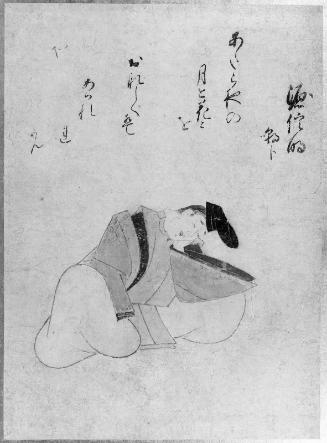 源信明
朝臣
あたらやの
月と花と
を
おなしくは
あはれ